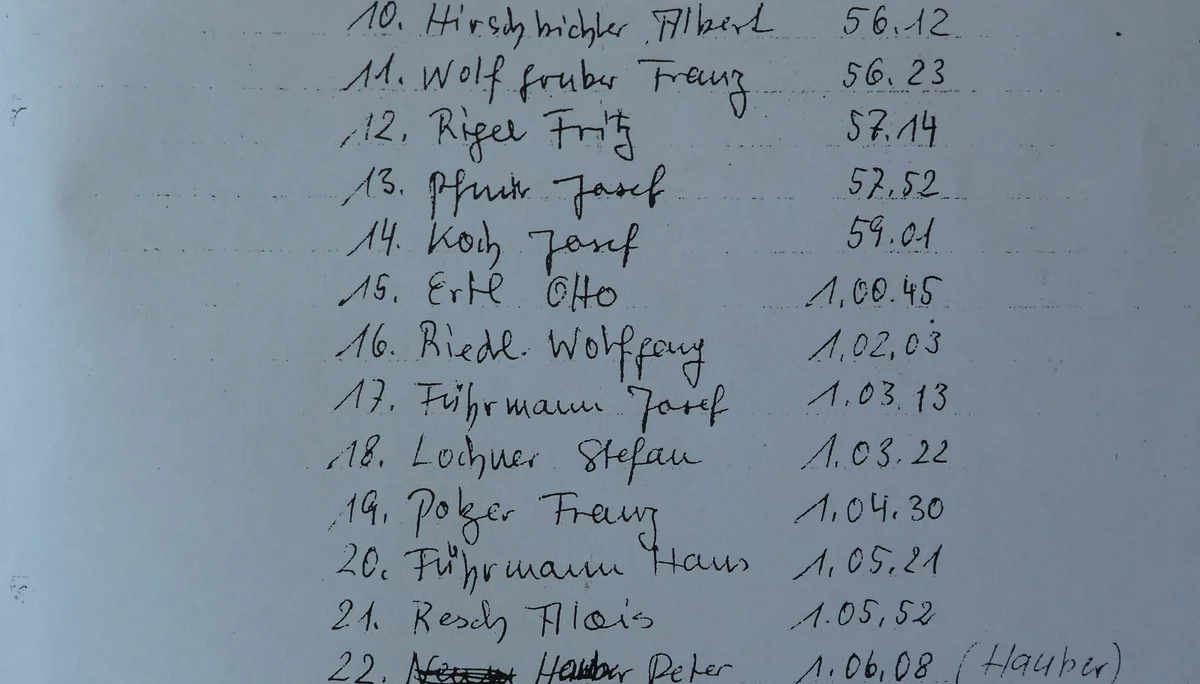 10. Hirschbichler Albert 56.12
11. Wolfgruber Franz 56.23
12. Rigel Fritz 57.14
13. Josef 57.52
14. Koch Josef 59.01
15. Ertl Otto 1.00.45
16. Riedl. Wolfgang 1.02.03
17. Führmann Josef 1.03.13
18. Lochner Stefan 1.03.22
19. Polzer Franz 1.04.30
20. Führmann Hans 1.05.21
21. Resch Alois 1.05.52
22. Hauber Peter 1.06.08 (Hauber)